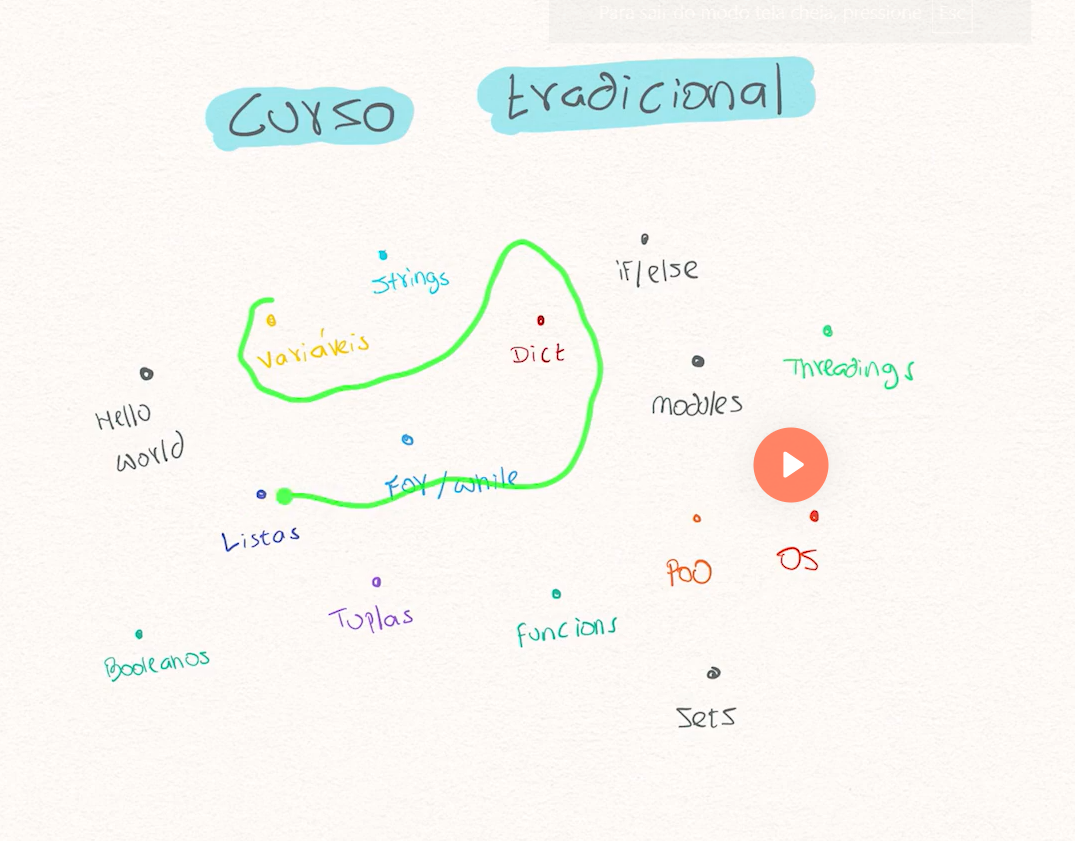 Para sair do modo tela cheia, pressione Esc
Curso tradicional
Strings
if/else
Variáveis
Dict
Threadings
Modules
Hello
World
For/while
Listas
POO
OS
Tuplas
Funcions
Booleanos
Sets